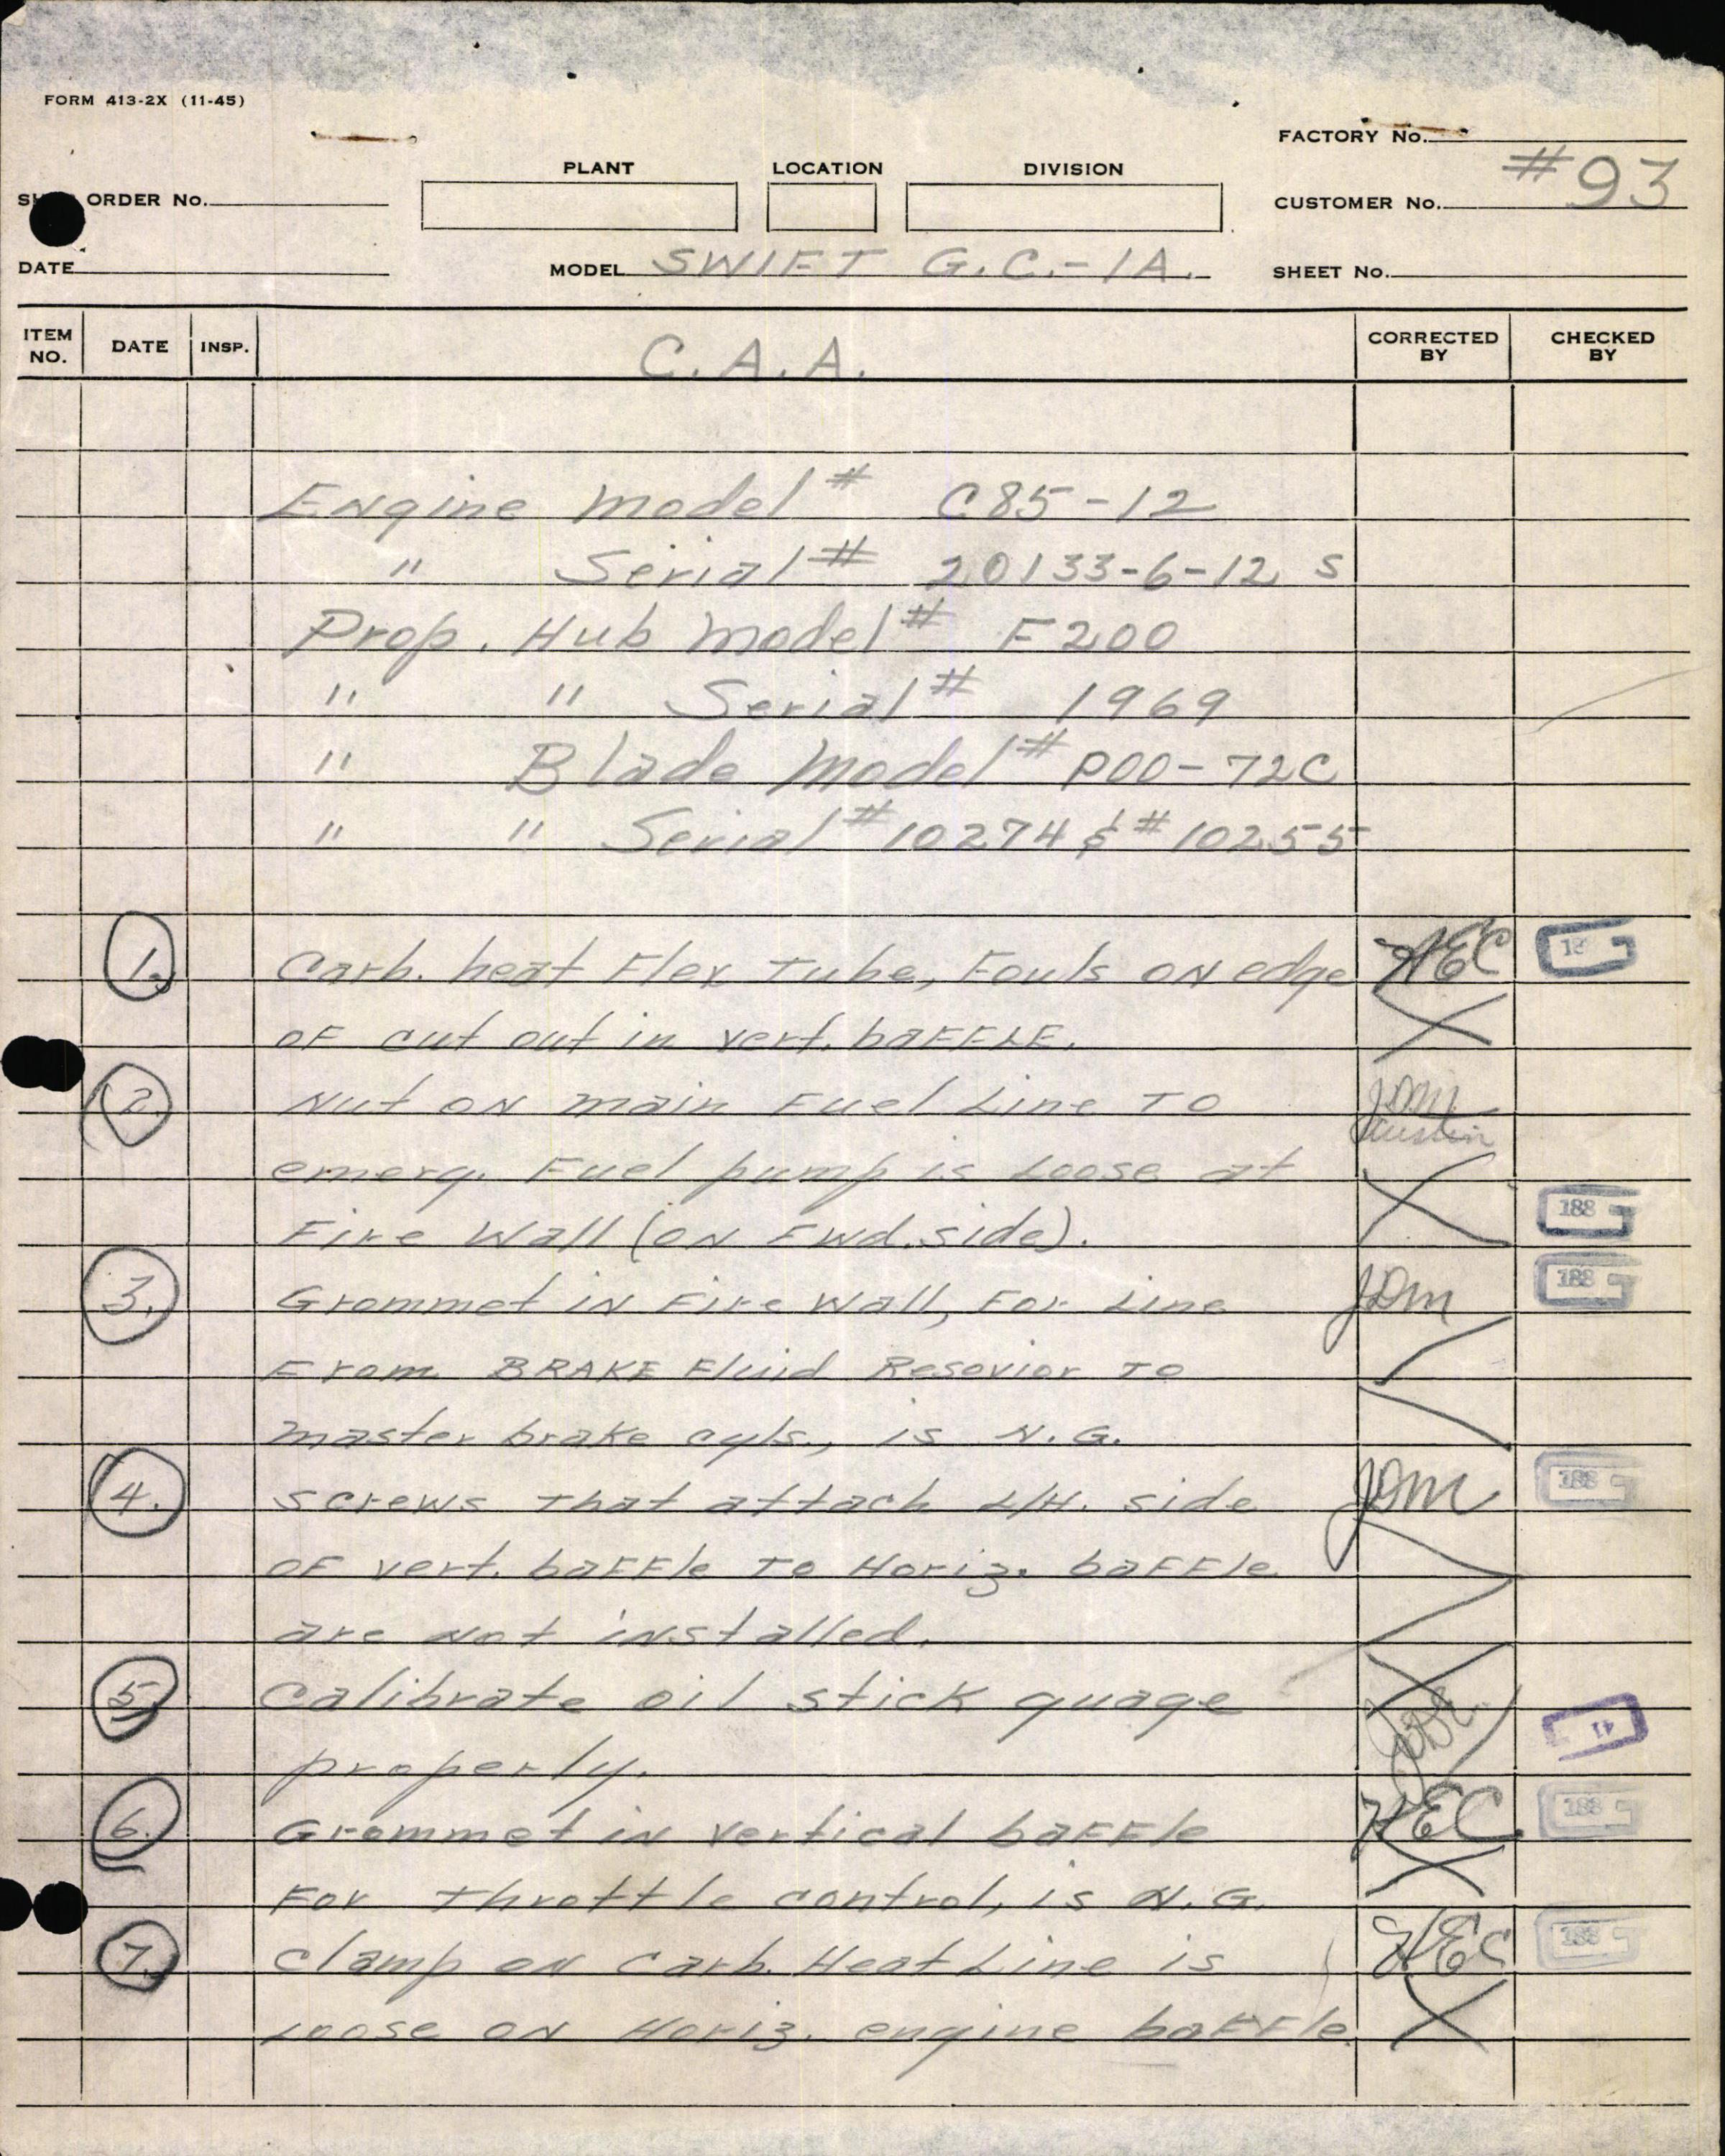 FORM 413-2X (11-45)
FACTORY No.
PLANT LOCATION DIVISION
#93
ORDER No. CUSTOMER No.
DATE MODEL SWIFT G.C.-1A. SHEET No.
ITEM NO. DATE INSP. C.A.A. CORRECTED BY CHECKED BY
Engine Model # C85-12
" Serial # 20133-6-12 S
Prop. Hub Model # F200
" " Serial # 1969
" Blade Model # P00-72C
" " Serial # 10274 & # 10255
1. Carb. heat Flex Tube, Fouls on edge HEC
of cut out in vert. baFFLE.
2. Nut on main Fuel Line To JDM
emerg. Fuel pump is Loose at
Fire Wall (on Fwd. side). 188
3. Grommet in Fire Wall, For Line JDM 188
From BRAKE Fluid Resovior To
master brake cyls., is N.G.
4. screws That attach L/H. side JDM 188
of vert. baFFle To Horiz. baFFle
are not installed.
5. Calibrate oil stick guage 41
properly.
6. Grommet in vertical baFFle HEC 188
For throttle control, is N.G.
7. clamp on Carb. Heat Line is HEC 188
Loose on Horiz. engine baFFle.